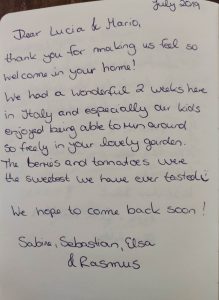 July 2019
Dear Lucia & Mario,
thank you for making us feel so
welcome in your home!
We had a wonderful 2 weeks here
in Italy and especially our kids
enjoyed being able to run around
so freely in your lovely garden.
The berries and tomatoes were
the sweetest we have ever tasted!
We hope to come back soon!
Sabine, Sebastian, Elsa
& Rasmus